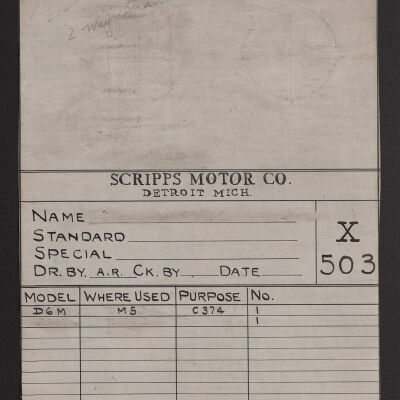 2 Way
SCRIPPS MOTOR CO.
DETROIT MICH.
NAME
STANDARD
SPECIAL
DR. BY. A.R. CK. BY DATE
X
503
MODEL WHERE USED PURPOSE NO.
D6M M5 C374 1
1